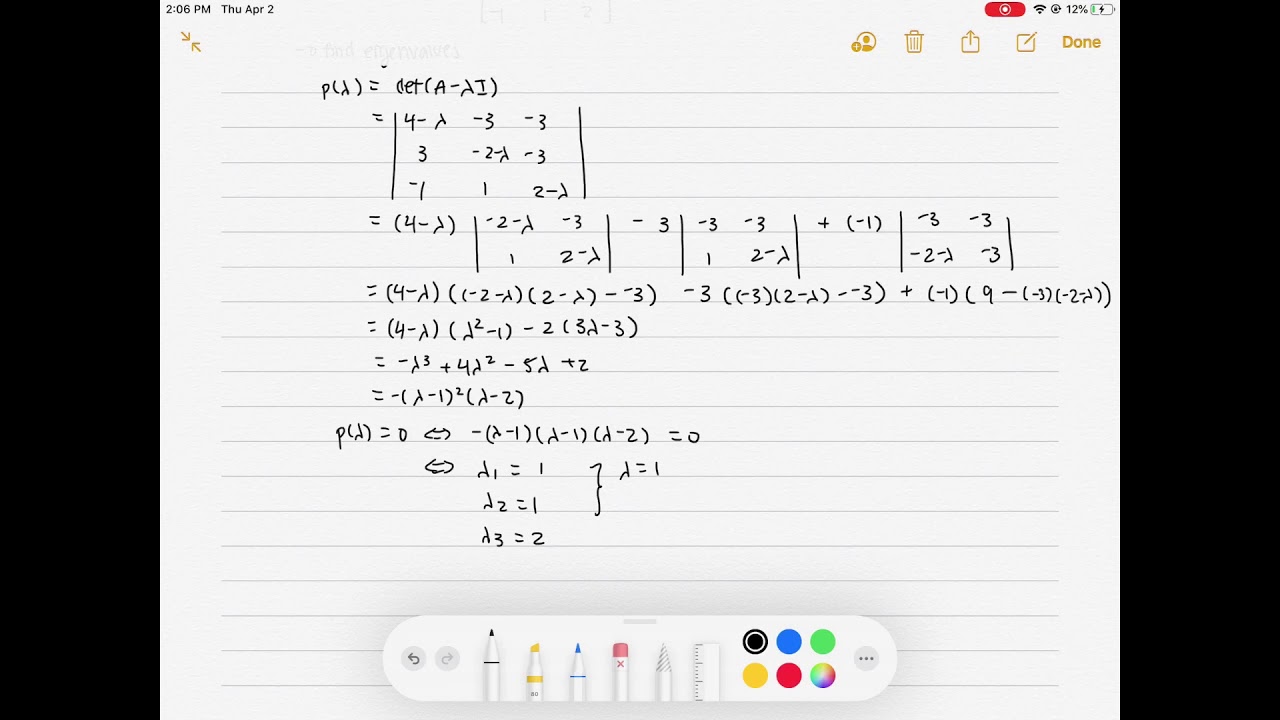 2:06 PM Thu Apr 2 12%
Done
→ find eigenvalues
p(λ) = det(A-λI)
= | 4-λ -3 -3 |
| 3 -2-λ -3 |
| -1 1 2-λ |
= (4-λ) | -2-λ -3 | - 3 | -3 -3 | + (-1) | -3 -3 |
| 1 2-λ | | 1 2-λ | | -2-λ -3 |
= (4-λ)((-2-λ)(2-λ) - -3) -3((-3)(2-λ) - -3) + (-1)(9 - (-3)(-2-λ))
= (4-λ)(λ²-1) - 2(3λ-3)
= -λ³ + 4λ² - 5λ + 2
= -(λ-1)²(λ-2)
p(λ) = 0 ⇔ -(λ-1)(λ-1)(λ-2) = 0
⇔ λ1 = 1 } λ = 1
λ2 = 1
λ3 = 2
80